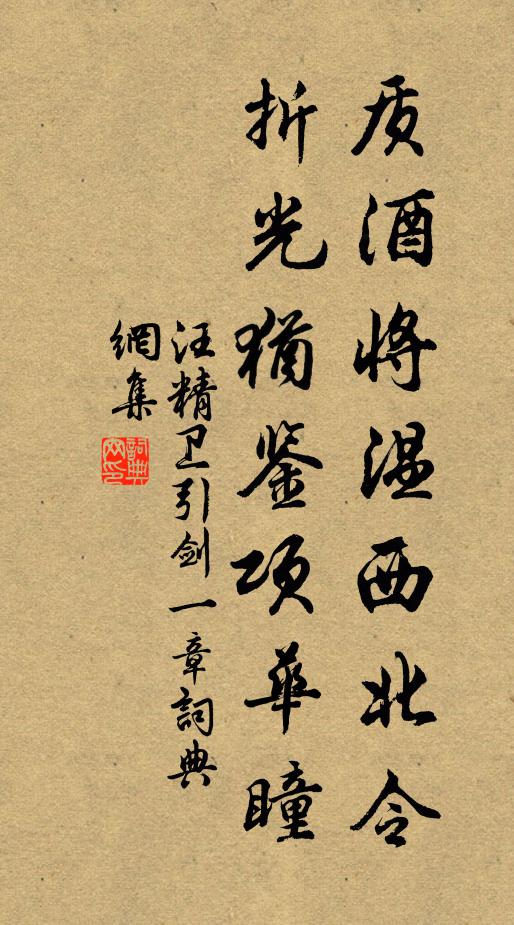 质酒将温西北令
折光犹鉴项华瞳
汪精卫引剑一章詞典
網集
詞典
网印